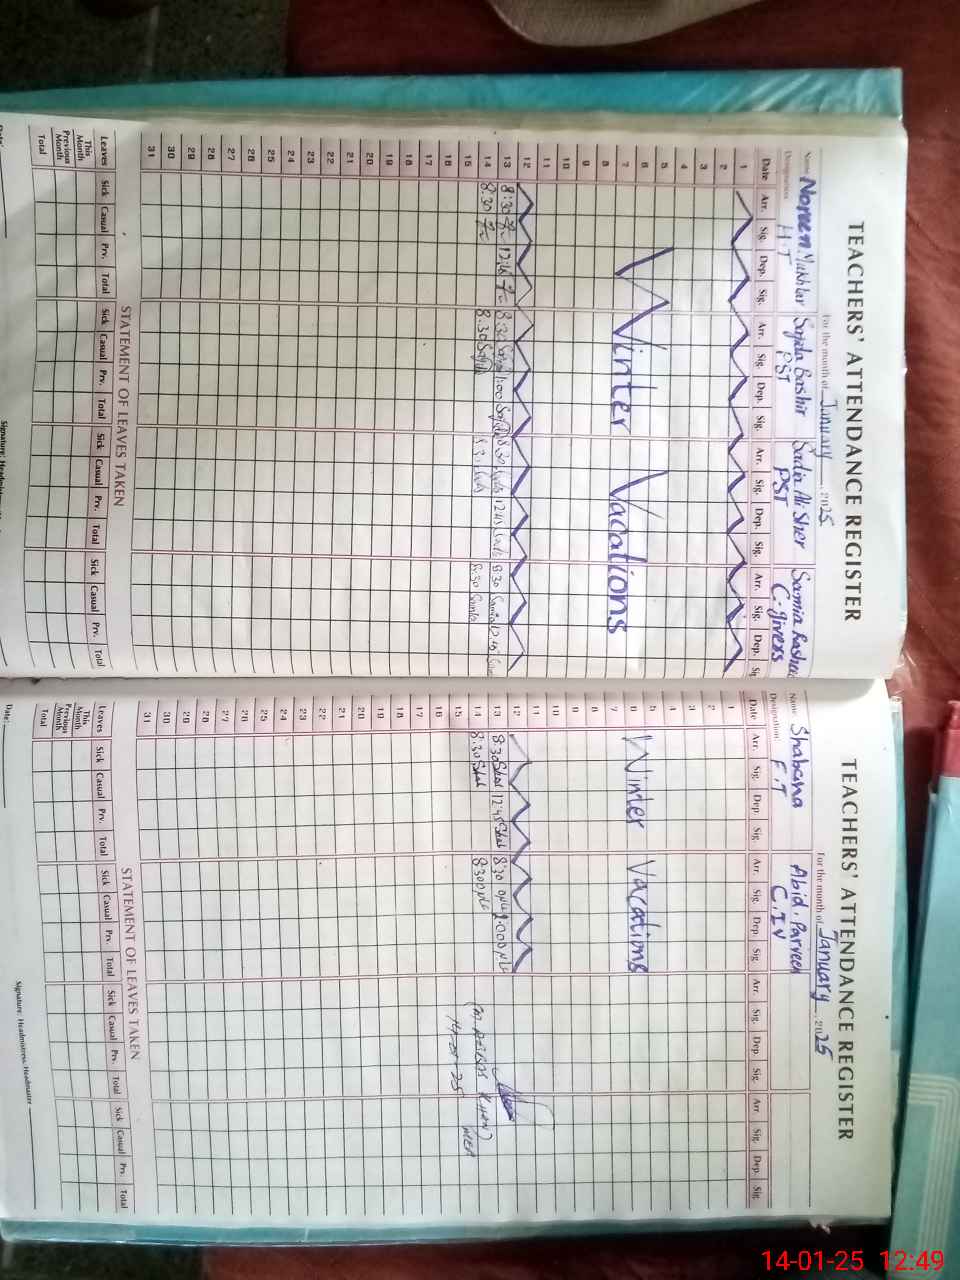 TEACHERS' ATTENDANCE REGISTER
For the month of January, 2025
Name Noreen Mukhtar Sajida Bashir Sadia Ali Sher Samia Rashee
Designation H.T PST PST C-givers
Date Arr. Sig. Dep. Sig. Arr. Sig. Dep. Sig. Arr. Sig. Dep. Sig. Arr. Sig. Dep. Sig
1
2
3
4
5
6
7
Winter Vacations
8
9
10
11
12
13 8:30 8:30 1:00 8:30 12:45 8:30 Samia 12:45
14 8:30 8:30 8:30 Samia
15
16
17
18
19
20
21
22
23
24
25
26
27
28
29
30
31
STATEMENT OF LEAVES TAKEN
Leaves Sick Casual Prv. Total Sick Casual Prv. Total Sick Casual Prv. Total Sick Casual Prv. Total
This Month
Previous Month
Total
Date:
TEACHERS' ATTENDANCE REGISTER
For the month of January, 2025
Name Shabana Abid Parveen
Designation: F.T C.IV
Date Arr. Sig. Dep. Sig. Arr. Sig. Dep. Sig. Arr. Sig. Dep. Sig. Arr. Sig. Dep. Sig.
1
2
3
4
5
6
7
Winter Vacations
8
9
10
11
12
13 8:30 Shab 12:45 Shab 8:30 1:00
14 8:30 Shab 8:30
KHAN)
MEA
14-01-25
15
16
17
18
19
20
21
22
23
24
25
26
27
28
29
30
31
STATEMENT OF LEAVES TAKEN
Leaves Sick Casual Prv. Total Sick Casual Prv. Total Sick Casual Prv. Total Sick Casual Prv. Total
This Month
Previous Month
Total
Date:
Signature: Headmistress/Headmaster
14-01-25 12:49